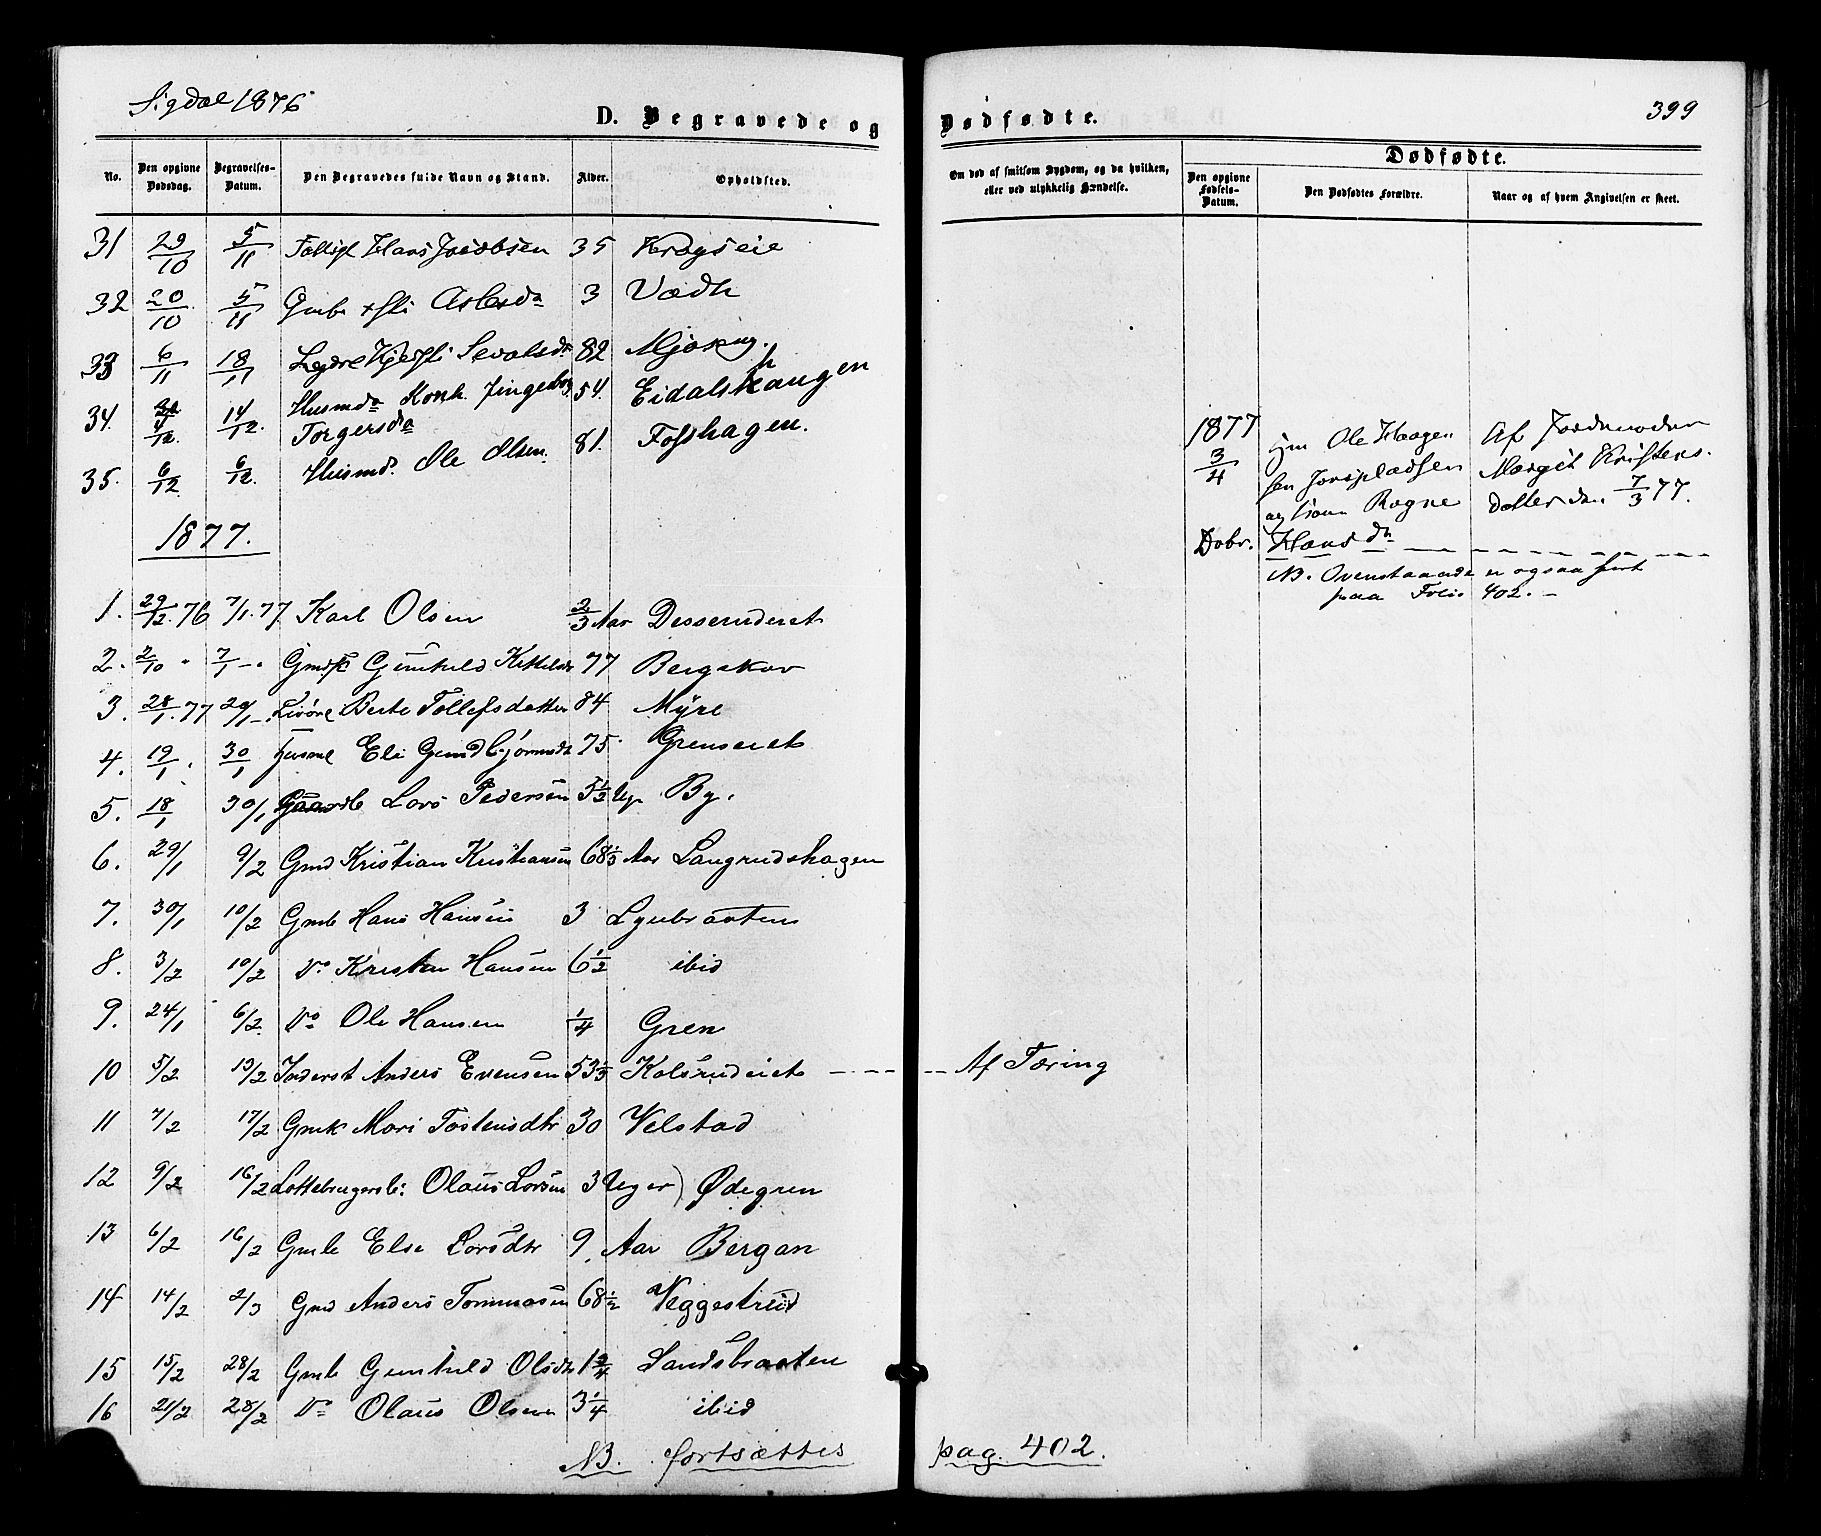 Sigdal 1876
D. Begravede og Dødfødte.
399
No.
Den opgivne Dødsdag.
Begravelses-Datum.
Den Begravedes fulde Navn og Stand.
Alder.
Opholdsted.
Om død af smitsom Sygdom, og da hvilken, eller ved ulykkelig Hændelse.
Dødfødte.
Den opgivne Fødsels-Datum.
Den Dødfødtes Forældre.
Naar og af hvem Angivelsen er skeet.
31 29/10 5/11 Hans Jacobsen 35 Kragseie
32 20/10 5/11 3
33 6/11 18/11 Sevalsda 82
34. 14/12. Husmda Torgersda 54 Eidalshaugen
35. 6/12 6/12. Husmd. Ole Olsen. 81. Fosshagen.
1877.
1. 29/12. 76 7/1. 77 Karl Olsen 2/3 Aar Desseruderet
2. 2/10 " 7/1 - " Gunhild 77 Bergskov
3. 28/1. 77 29/1 - Berte Tollefsdatter 84 Myre
4. 19/1 " 30/1 Eli 75 Grenseiet
5. 18/1 30/1 Lars Pedersen By.
6. 29/1 9/2 Gmd Kristian Kristiansen Aar Langrudshagen
7. 30/1 10/2 Gmb Hans Hansen 3 Lyubraaten
8. 3/2 10/2 Do Kristen Hansen 6 1/2 ibid
9. 24/1 6/2. Do Ole Hansen 1/4 Gren
10 5/2 13/2 Inderst Anders Evensen Kolsrudeiet - - - - - Af Tæring
11 7/2 17/2 Gmk Mari Tostensdtr 30 Velstad
12 9/2 16/2 Olaus Larsen 3 Uger) Ødegren
13 6/2 16/2 Gmb Else Larsdtr 9 Aar Bergan
14 14/2 2/3 Gmd Anders Tommasen 68 1/2 Veggestrud
15 15/2 28/2 Gmb Gunhild Olsdtr Landsbraaten
16 21/2 28/2 Do Olaus Olsen 3 1/4 ibid
NB. fortsættes pag. 402.
1877
3/4 Ole Haagen Af Jordmoder
sen Jonspladsen Margit Kristens.
og Kone Ragne datter den 7/3 77.
Dobr. Hansdtr - - - - - -
NB. Ovenstaaende er ogsaa ført
paa Folio 402. -